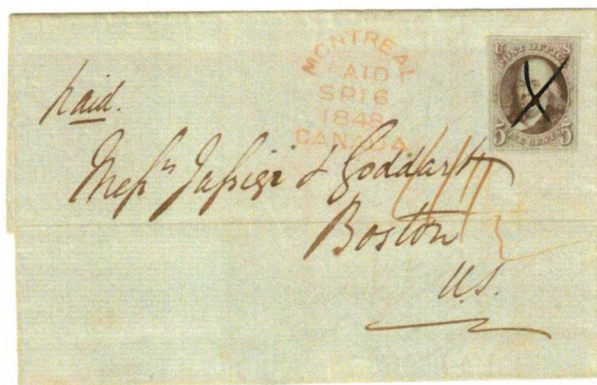 MONTREAL
PAID
SP 16
1848
CANADA
POST OFFICE
5 FIVE CENTS 5
paid.
Messrs Iasigi & Goddard
Boston
U.S.